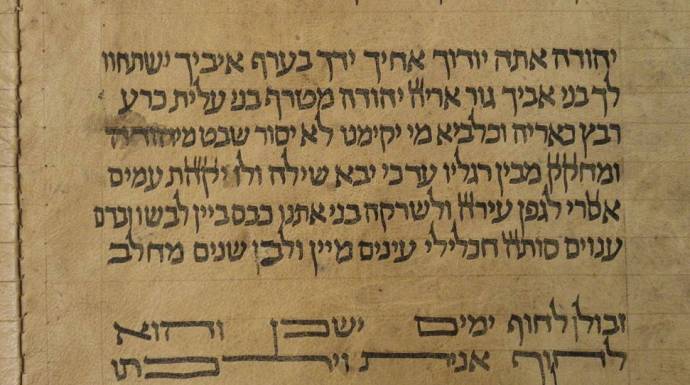 יהודה אתה יודוך אחיך ידך בערף איביך ישתחוו
לך בני אביך גור אריה יהודה מטרף בני עלית כרע
רבץ כאריה וכלביא מי יקימנו לא יסור שבט מיהודה
ומחקק מבין רגליו עד כי יבא שילה ולו יקהת עמים
אסרי לגפן עירה ולשרקה בני אתנו כבס ביין לבשו ובדם
ענבים סותה חכלילי עינים מיין ולבן שנים מחלב
זבולן לחוף ימים ישכן והוא
לחוף אנית וירכתו